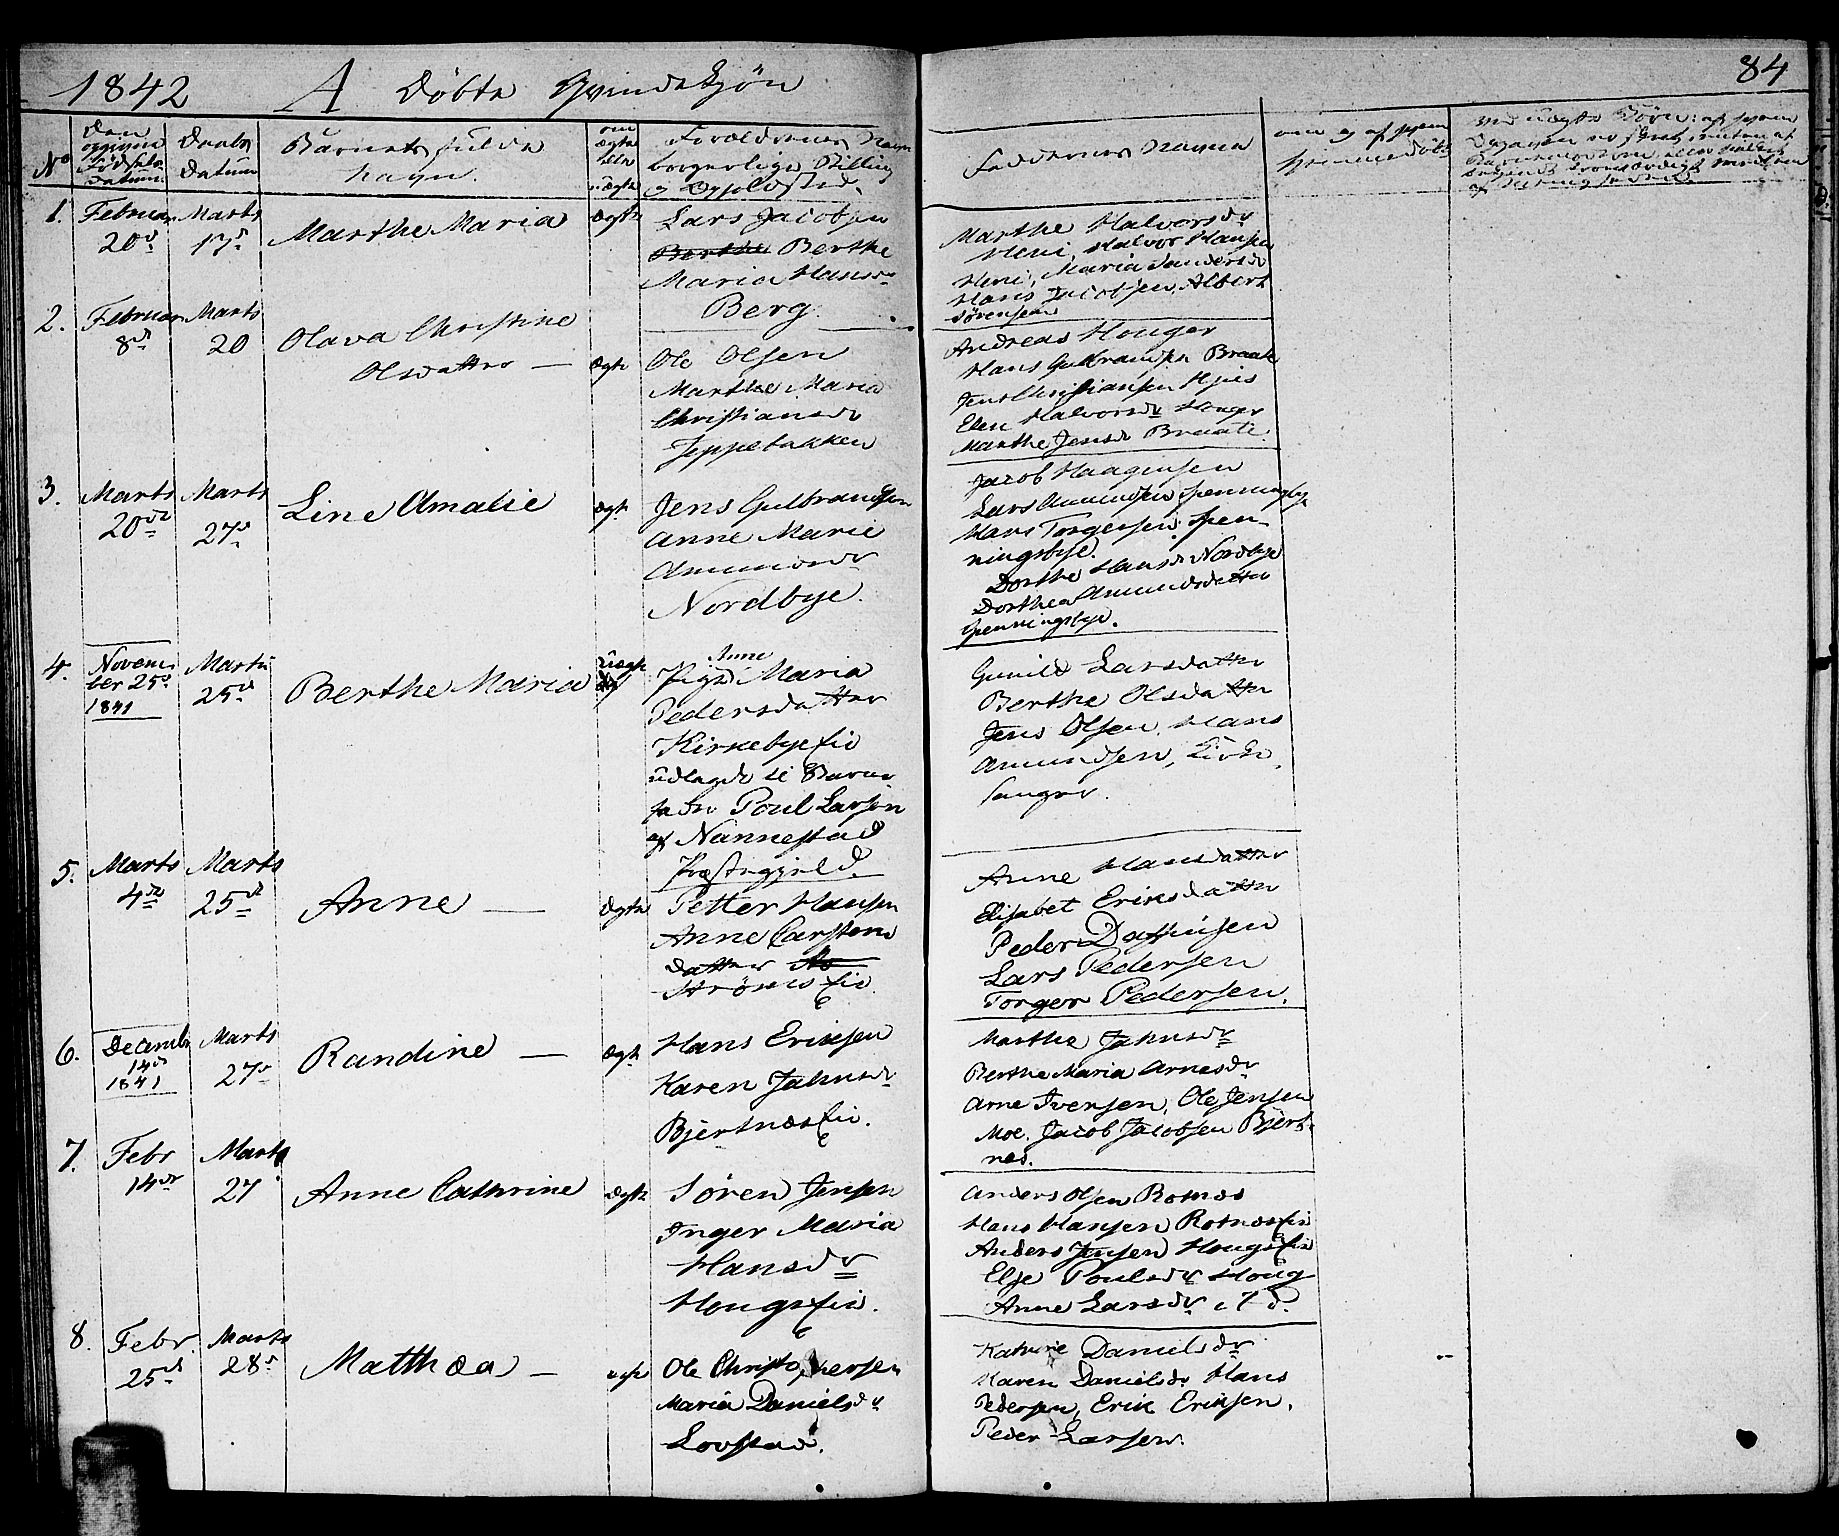 1842 A Döbte Qvindekjön 84
No
Den opgivne Fødsels Datum
Daabs Datum
Barnets fulde Navn.
om ægte eller uægte
Forældrenes Navn borgerlige Stilling og Opholdsted.
Faddernes Navne
1. Februar 20de Marts 17de Marthe Maria Ægte
Lars Jacobsen
Berthe Berthe
Maria Hansdr
Berg.
Marthe Halvorsdr
Meni, Halvor Hansen
Meni, Maria Andersdr
Hans Jacobsen, Albert
Sørensen
2. Februar 8de Marts 20 Olava Christine
Olsdatter — Ægte
Ole Olsen
Marthe Maria
Christiansdr
Jeppebakken
Andreas Houger
Hans Gulbransen Braate
Jens Christiansen Hjeis
Elen Halvorsdr Houger
Marthe Jensdr Braate.
3. Marts 20de Marts 27de Line Amalie Ægte
Jens Gulbrandsen
Anne Marie
Amundsdr
Nordbye.
Jacob Haagensen
Lars Amundsen Spenningbye
Hans Torgersen, Spen-
ningsbye.
Dorthe Hansdr Nordbye
Dorthea Amundsdatter
Spenningsbye.
4. Novem-
ber 25de
1841
Marts 25de Berthe Maria uægte
Anne
Pige Maria
Pedersdatter
Kirkebyeeie
udlagde til Barne
fader Poul Larsen
af Nannestad
Præstegjeld.
Gunild Larsdatter
Berthe Olsdatter
Jens Olsen, Hans
Amundsen, Kirke-
sanger.
5. Marts 4de Marts 25de Anne — Ægte
Petter Hansen
Anne Carstens
datter
Strömseie
Anne Hansdatter
Elisabet Eriksdatter
Peder
Lars Pedersen
Torger Pedersen.
6. Decembr
14de
1841
Marts 27de Randine — Ægte
Hans Eriksen
Karen Jahnsdr
Bjertnæseie.
Marthe Jahnsdr
Berthe Maria Arnesdr
Arne Iversen, Ole Jensen
Moe. Jacob Jacobsen Bjert-
næs.
7. Febr 14de Marts 27 Anne Cathrine Ægte
Sören Jensen
Inger Maria
Hansdr
Hougseie.
Anders Olsen Rotnæs
Hans Hansen Rotnæseie
Anders Jensen Hougseie
Else Poulsdr Houg
Anne Larsdr i 7 d.
8. Febr. 25de Marts 28de Matthea — Ægte
Ole Christophersen
Maria Danielsdr
Lovstad.
Katrine Danielsdr
Maren Danielsdr Hans
Pedersen, Erik Eriksen,
Peder Larsen.